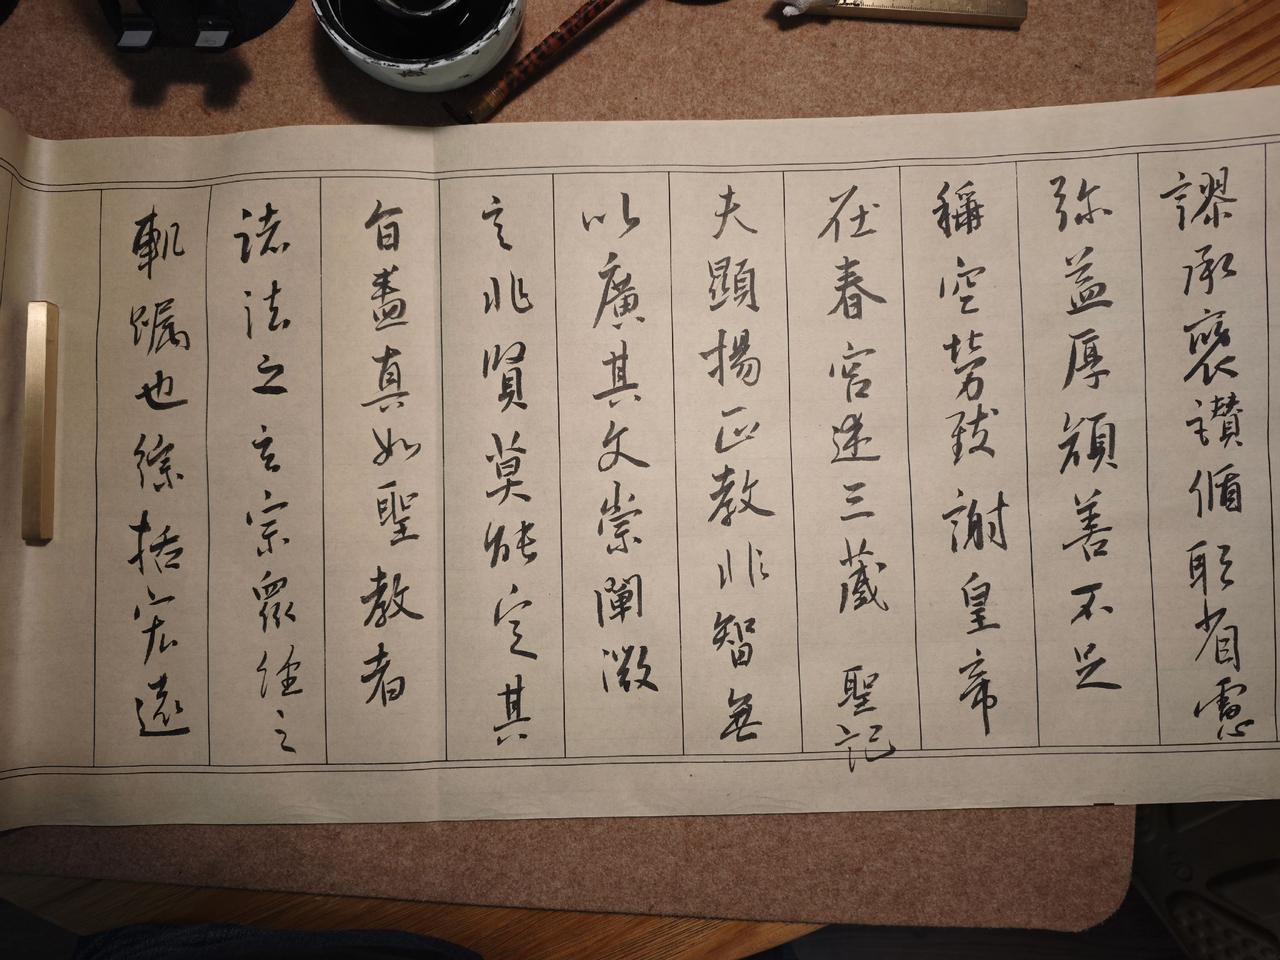 謬承褒讚循躬省慮
弥益厚顏善不足
稱空勞致謝皇帝
在春宮述三藏聖記
夫顯揚正教非智無
以廣其文崇闡微
言非賢莫能定其
旨蓋真如聖教者
諸法之玄宗眾經之
軌躅也綜括宏遠